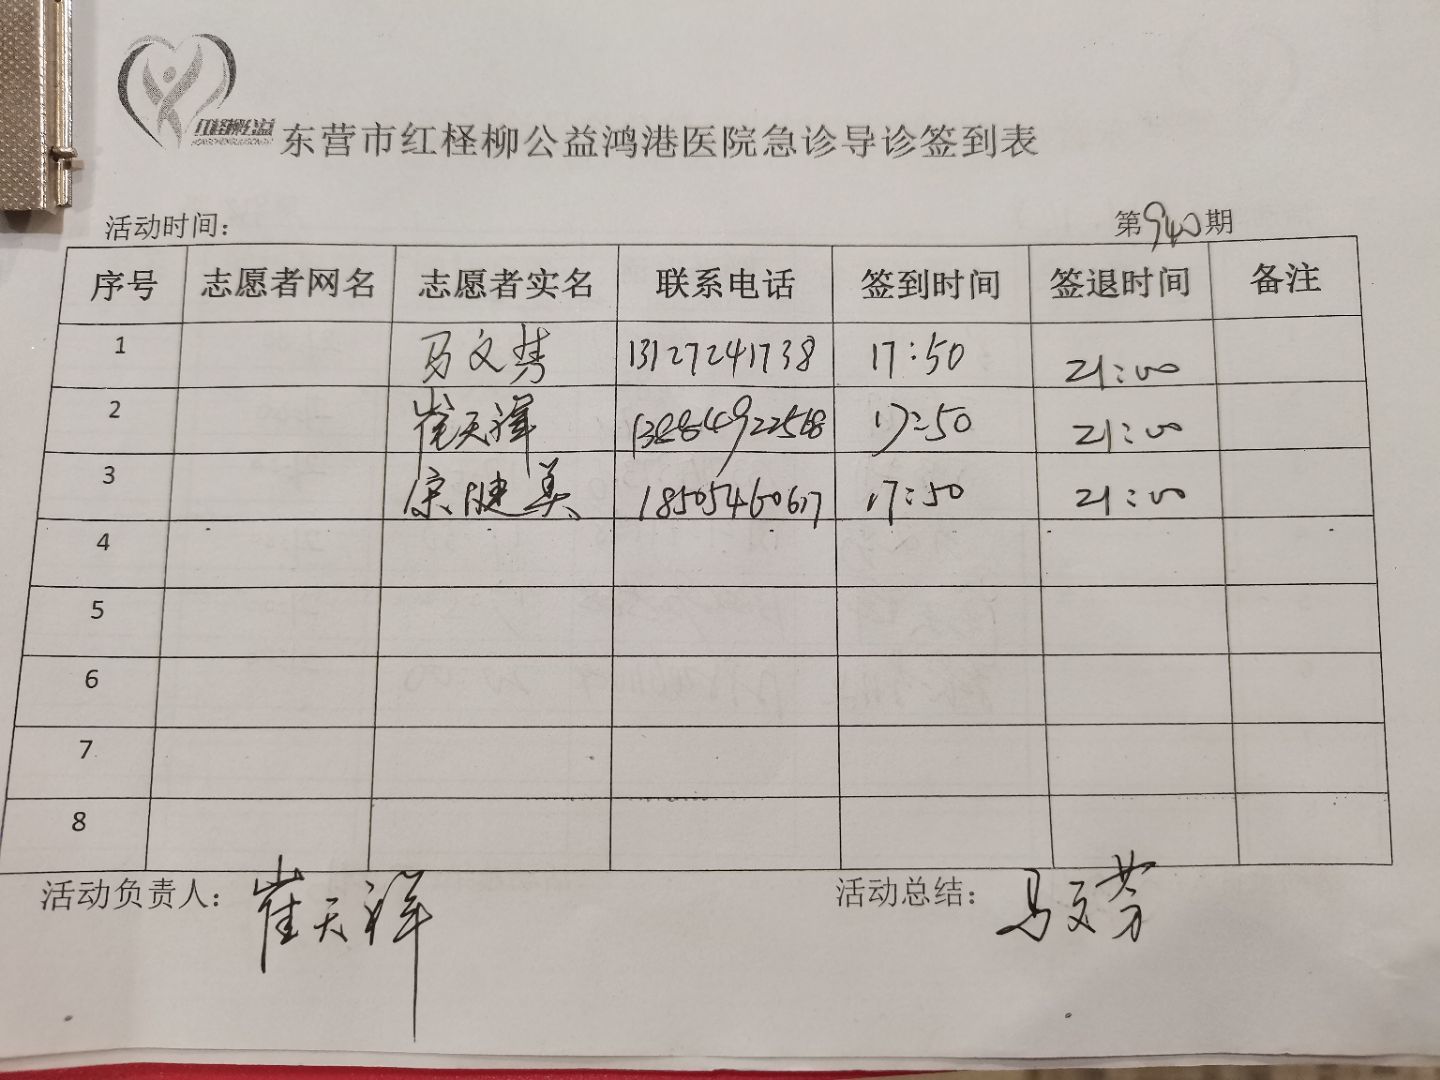 红柽柳公益
东营市红柽柳公益鸿港医院急诊导诊签到表
活动时间: 第940期
序号 志愿者网名 志愿者实名 联系电话 签到时间 签退时间 备注
1 马文芳 13127241738 17:50 21:00
2 崔天祥 17:50 21:00
3 18505460617 17:50 21:00
4
5
6
7
8
活动负责人: 崔天祥 活动总结: 马文芳